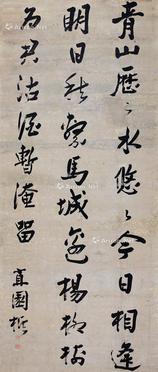 青山歷々水悠々今日相逢
明日秋繫馬城邊楊柳樹
為君沽酒暫淹留
直園